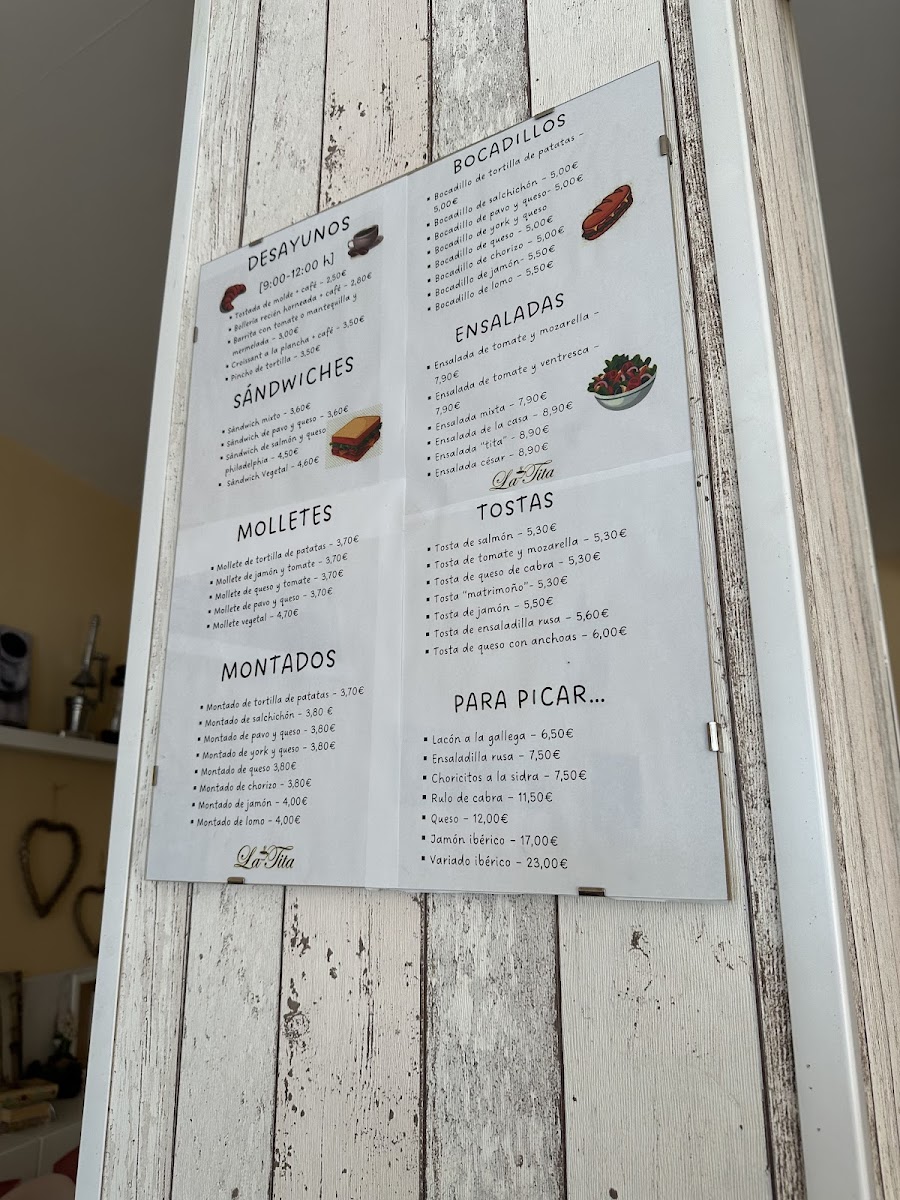 DESAYUNOS
[9:00-12:00 h]
▪ Tostada de molde + café - 2,50€
▪ Bollería recién horneada + café - 2,80€
▪ Barrita con tomate o mantequilla y
mermelada - 3,00€
▪ Croissant a la plancha + café - 3,50€
▪ Pincho de tortilla - 3,50€
SÁNDWICHES
▪ Sándwich mixto - 3,60€
▪ Sándwich de pavo y queso - 3,60€
▪ Sándwich de salmón y queso
philadelphia - 4,50€
▪ Sándwich Vegetal - 4,60€
MOLLETES
▪ Mollete de tortilla de patatas - 3,70€
▪ Mollete de jamón y tomate - 3,70€
▪ Mollete de queso y tomate - 3,70€
▪ Mollete de pavo y queso - 3,70€
▪ Mollete vegetal - 4,70€
MONTADOS
▪ Montado de tortilla de patatas - 3,70€
▪ Montado de salchichón - 3,80 €
▪ Montado de pavo y queso - 3,80€
▪ Montado de york y queso - 3,80€
▪ Montado de queso 3,80€
▪ Montado de chorizo - 3,80€
▪ Montado de jamón - 4,00€
▪ Montado de lomo - 4,00€
La Tita
BOCADILLOS
▪ Bocadillo de tortilla de patatas -
5,00€
▪ Bocadillo de salchichón - 5,00€
▪ Bocadillo de pavo y queso- 5,00€
▪ Bocadillo de york y queso
▪ Bocadillo de queso - 5,00€
▪ Bocadillo de chorizo - 5,00€
▪ Bocadillo de jamón- 5,50€
▪ Bocadillo de lomo - 5,50€
ENSALADAS
▪ Ensalada de tomate y mozarella -
7,90€
▪ Ensalada de tomate y ventresca -
7,90€
▪ Ensalada mixta - 7,90€
▪ Ensalada de la casa - 8,90€
▪ Ensalada "tita" - 8,90€
▪ Ensalada césar - 8,90€
La Tita
TOSTAS
▪ Tosta de salmón - 5,30€
▪ Tosta de tomate y mozarella - 5,30€
▪ Tosta de queso de cabra - 5,30€
▪ Tosta "matrimoño"- 5,30€
▪ Tosta de jamón - 5,50€
▪ Tosta de ensaladilla rusa - 5,60€
▪ Tosta de queso con anchoas - 6,00€
PARA PICAR...
▪ Lacón a la gallega - 6,50€
▪ Ensaladilla rusa - 7,50€
▪ Choricitos a la sidra - 7,50€
▪ Rulo de cabra - 11,50€
▪ Queso - 12,00€
▪ Jamón ibérico - 17,00€
▪ Variado ibérico - 23,00€